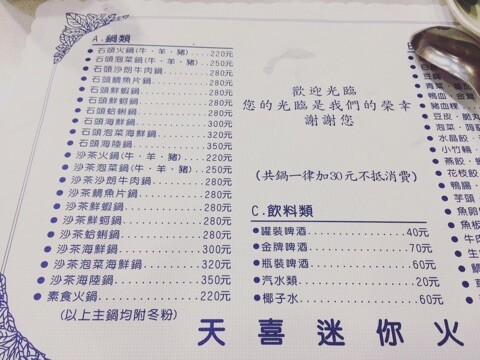 A.鍋類
●石頭火鍋(牛、羊、豬)...220元
●石頭泡菜鍋(牛、羊、豬)..250元
●石頭沙朗牛肉鍋..........280元
●石頭鯛魚片鍋............280元
●石頭鮮蝦鍋..............280元
●石頭鮮蚵鍋..............280元
●石頭蛤蜊鍋..............280元
●石頭海鮮鍋..............300元
●石頭泡菜海鮮鍋..........320元
●石頭海陸鍋..............350元
●沙茶火鍋(牛、羊、豬)...220元
●沙茶泡菜鍋(牛、羊、豬)..250元
●沙茶沙朗牛肉鍋..........280元
●沙茶鯛魚片鍋............280元
●沙茶鮮蝦鍋..............280元
●沙茶鮮蚵鍋..............280元
●沙茶蛤蜊鍋..............280元
●沙茶海鮮鍋..............300元
●沙茶泡菜海鮮鍋..........320元
●沙茶海陸鍋..............350元
●素食火鍋................220元
(以上主鍋均附冬粉)
歡迎光臨
您的光臨是我們的榮幸
謝謝您
(共鍋一律加30元不抵消費)
C.飲料類
●罐裝啤酒................40元
●金牌啤酒................70元
●瓶裝啤酒................60元
●汽水類..................20元
●椰子水..................60元
●豆腐
●青菜
●鴨血、金
●豬血糕
●豆皮、脆丸
●泡菜
●水晶餃
●小竹輪
●燕餃
●花枝餃
●鴨腸
●芋頭
●魚卵
●魚板
●牛肉
天喜迷你火